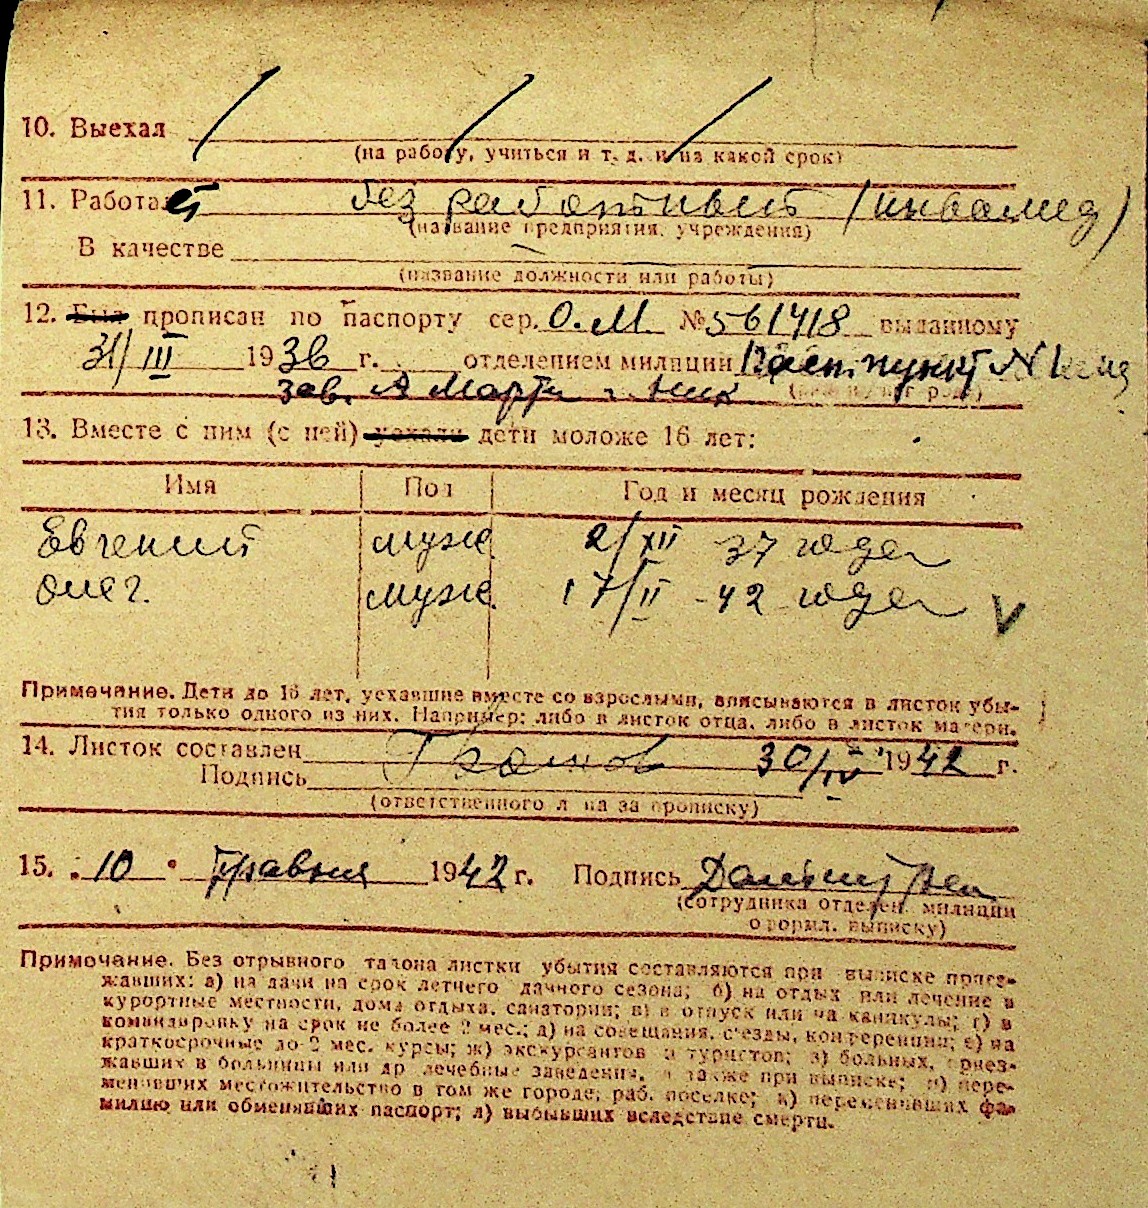 10. Выехал / / /
(на работу, учиться и т. д. и на какой срок)
11. Работает без работный (инвалид)
(название предприятия, учреждения)
В качестве
(название должности или работы)
12. Был прописан по паспорту сер. О.М. № 561418 выданному
31/III 1936 г. отделением милиции Паст.пункт N
зав. А Марти г. Ник
13. Вместе с ним (с ней) уехали дети моложе 16 лет:
Имя Пол Год и месяц рождения
Евгений муж. 2/XII 37 года
Олег. муж. 17/II -42 года V
Примечание. Дети до 16 лет, уехавшие вместе со взрослыми, вписываются в листок убы-
тия только одного из них. Например: либо в листок отца, либо в листок матери.
14. Листок составлен 30/IV 1942 г.
Подпись
(ответственного лица за прописку)
15. „10" травня 1942 г. Подпись
(сотрудника отделен. милиции
оформл. выписку)
Примечание. Без отрывного талона листки убытия составляются при выписке приез-
жавших: а) на дачи на срок летнего дачного сезона; б) на отдых или лечение в
курортные местности, дома отдыха, санатории; в) в отпуск или на каникулы; г) в
командировку на срок не более 2 мес.; д) на совещания, съезды, конференции; е) на
краткосрочные до 2 мес. курсы; ж) экскурсантов и туристов; з) больных, приез-
жавших в больницы или др. лечебные заведения, а также при выписке; и) пере-
менивших местожительство в том же городе, раб. поселке; к) переменивших фа-
милию или обменявших паспорт; л) выбывших вследствие смерти.